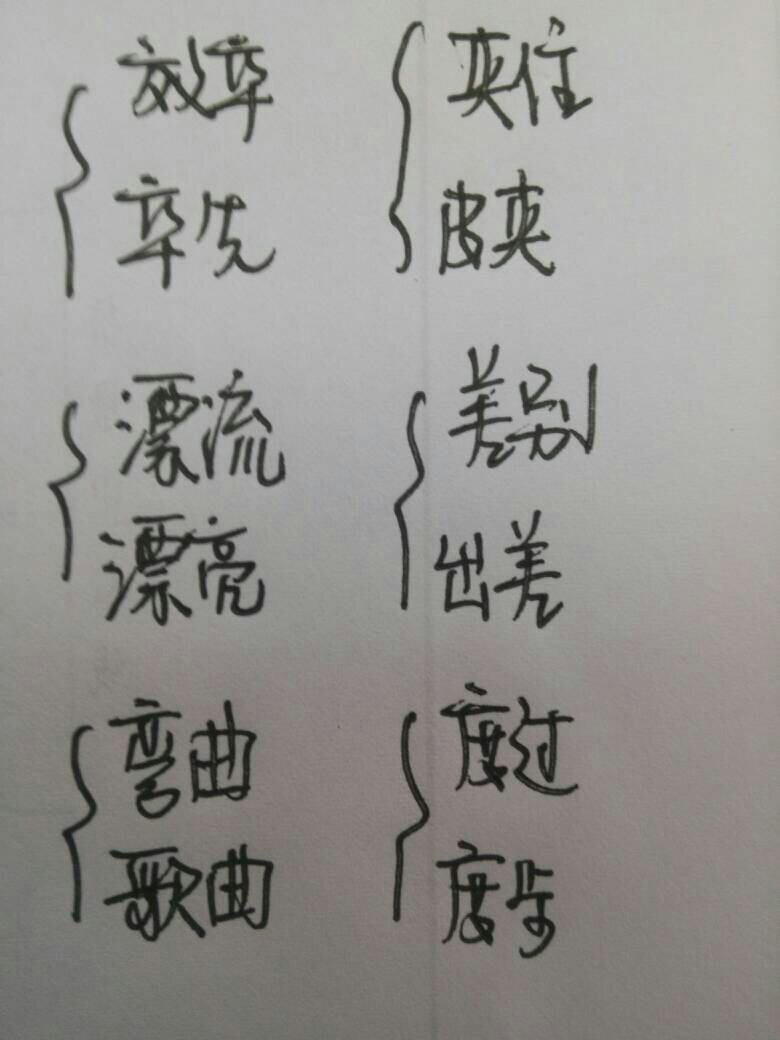 效率
率先
夹住
皮夹
漂流
漂亮
差别
出差
弯曲
歌曲
度过
度步